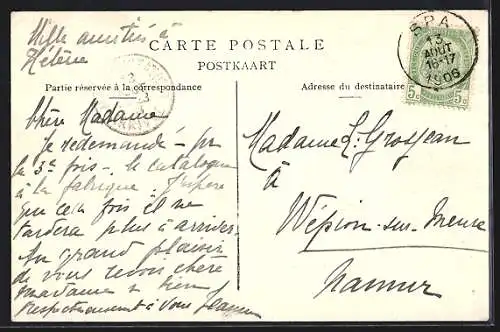 Mille amitiés à
Hélène
CARTE POSTALE
POSTKAART
Partie réservée à la correspondance
Adresse du destinataire
SPA
13
AOUT
16-17
1906
5c 5c
Chère Madame
Je redemande - pr
la 3e fois - le catalogue
à la fabrique. J'espère
que cette fois il ne
tardera plus à arriver.
Au grand plaisir
de vous revoir chère
madame & bien
respectueusement à vous Jeanne
Madame L. Grosjean
à
Wépion-sur-Meuse
Namur